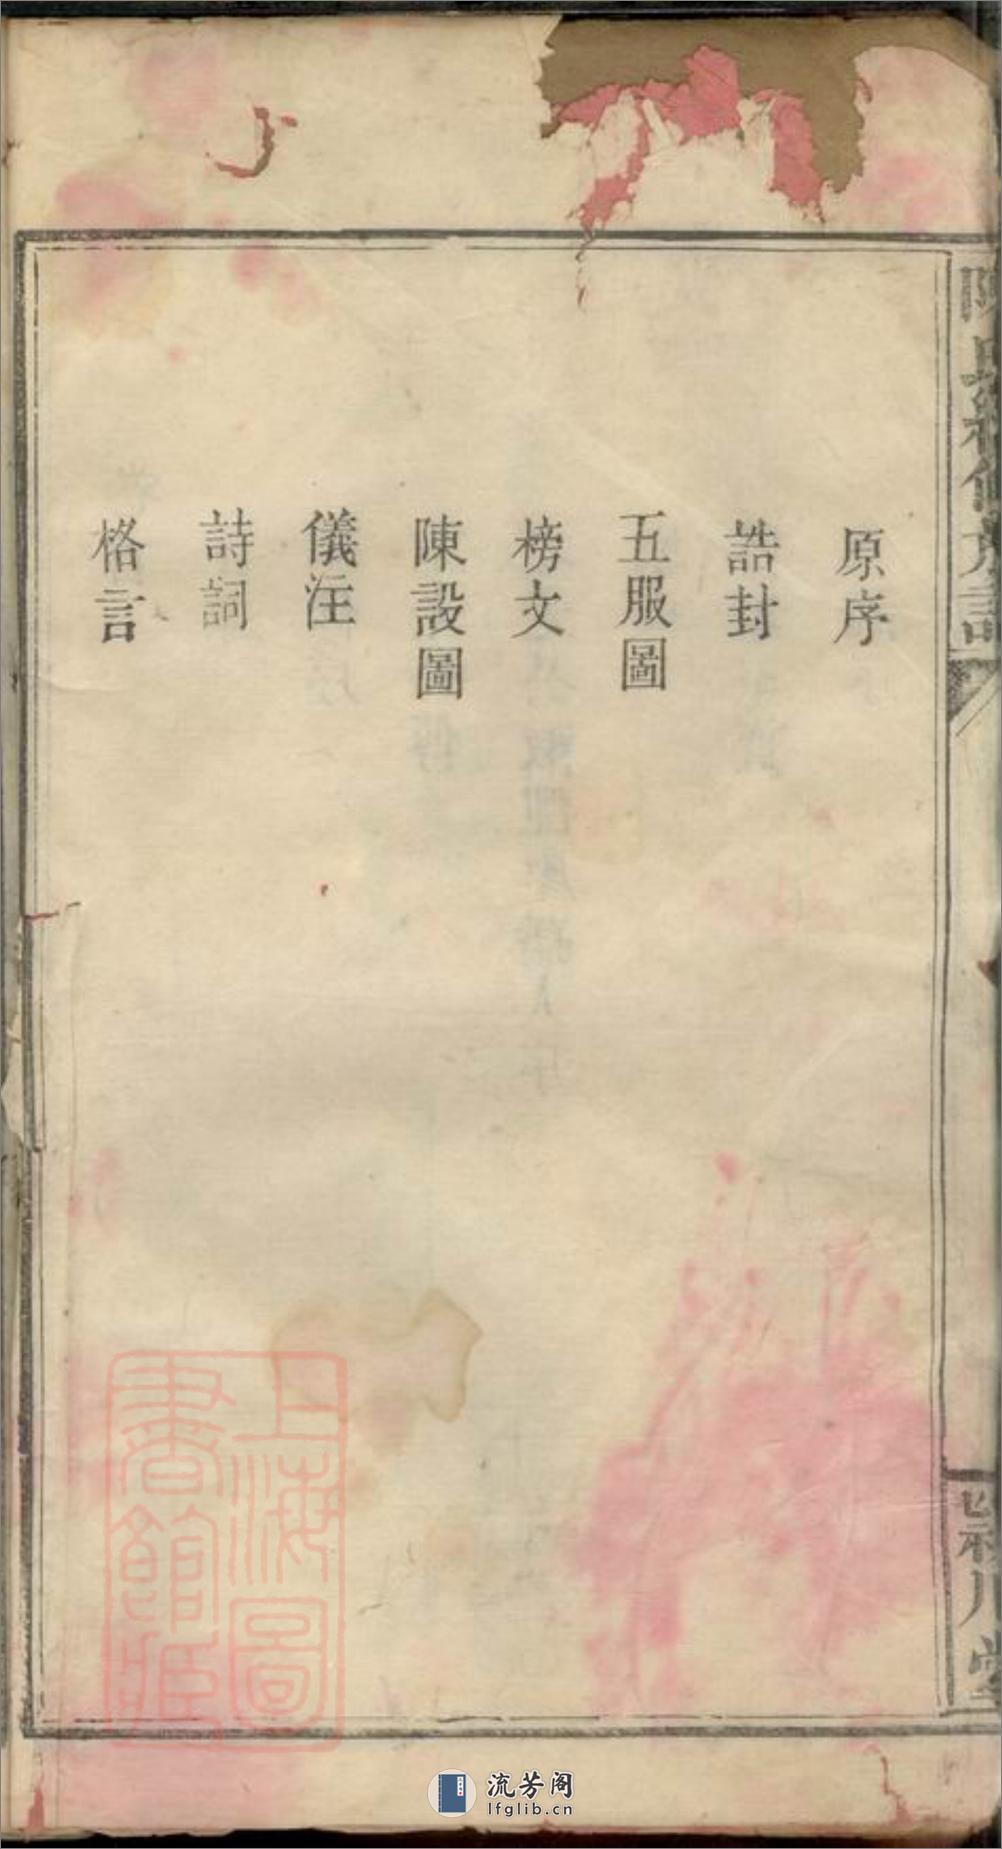 原序
誥封
五服圖
榜文
陳設圖
儀注
詩詞
格言
上海圖
書館藏
流芳阁
lfglib.cn